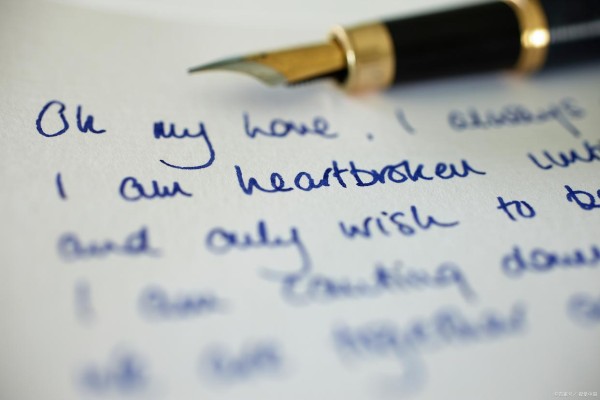 Oh my love. I always
I am heartbroken
and only wish to be
I am counting down
we are together